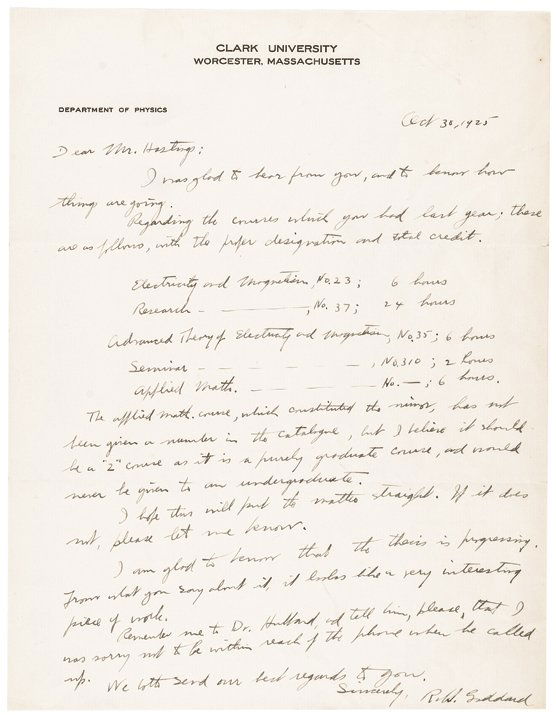 CLARK UNIVERSITY
WORCESTER, MASSACHUSETTS
DEPARTMENT OF PHYSICS
Oct 30, 1925
Dear Mr. Hastings:
I was glad to hear from you, and to know how
things are going.
Regarding the courses which you had last year; these
are as follows, with the proper designation and total credit.
Electricity and Magnetism, No. 23; 6 hours
Research - ————, No. 37; 24 hours
Advanced Theory of Electricity and Magnetism, No. 35; 6 hours
Seminar - - - - - , No. 310; 2 hours
Applied Math. - — — — — No. —; 6 hours.
The applied math. course, which constituted the minor, has not
been given a number in the catalogue, but I believe it should
be a "2" course as it is a purely graduate course, and would
never be given to an undergraduate.
I hope this will put the matter straight. If it does
not, please let me know.
I am glad to know that the thesis is progressing.
From what you say about it, it looks like a very interesting
piece of work.
Remember me to Dr. Hubbard, and tell him, please, that I
was sorry not to be within reach of the phone when he called
up.
We both send our best regards to you.
Sincerely,
R. H. Goddard